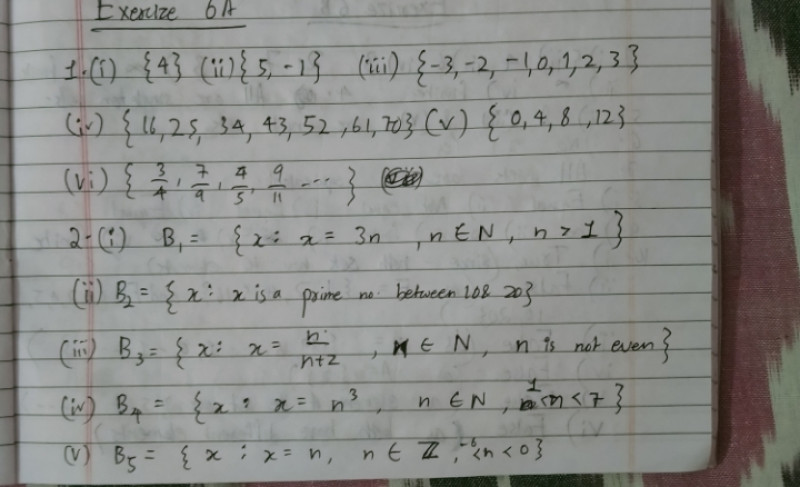 Exercize 6A
1.(i) {4} (ii) {5, -1} (iii) {-3, -2, -1, 0, 1, 2, 3}
(iv) {16, 25, 34, 43, 52, 61, 70} (v) {0, 4, 8, 12}
(vi) {3/4, 7/9, 4/5, 9/11 ... }
2-(i) B₁ = {x: x = 3n, n ∈ N, n > 1}
(ii) B₂ = {x: x is a prime no. between 10 & 20}
(iii) B₃ = {x: x = n/n+2, n ∈ N, n is not even}
(iv) B₄ = {x: x = n³, n ∈ N, 1<n<7}
(v) B₅ = {x: x = n, n ∈ ℤ, -6<n<0}